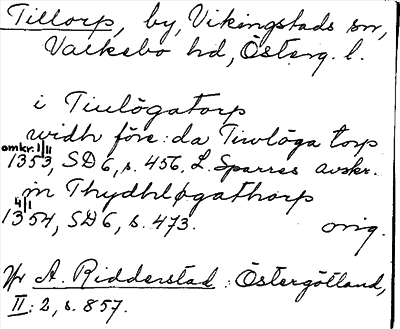 Tillorp, by, Vikingstads sn,
Valkebo hd, Österg. l.
i Tiulögatorp
widh före: da Tiwlöga torp
omkr. 1/11
1353, SD 6, s. 456. L. Sparres avskr.
in Thydhløgathorp
4/1
1354, SD 6, s. 473. orig.
Jfr A. Ridderstad: Östergötland,
II: 2, s. 857.